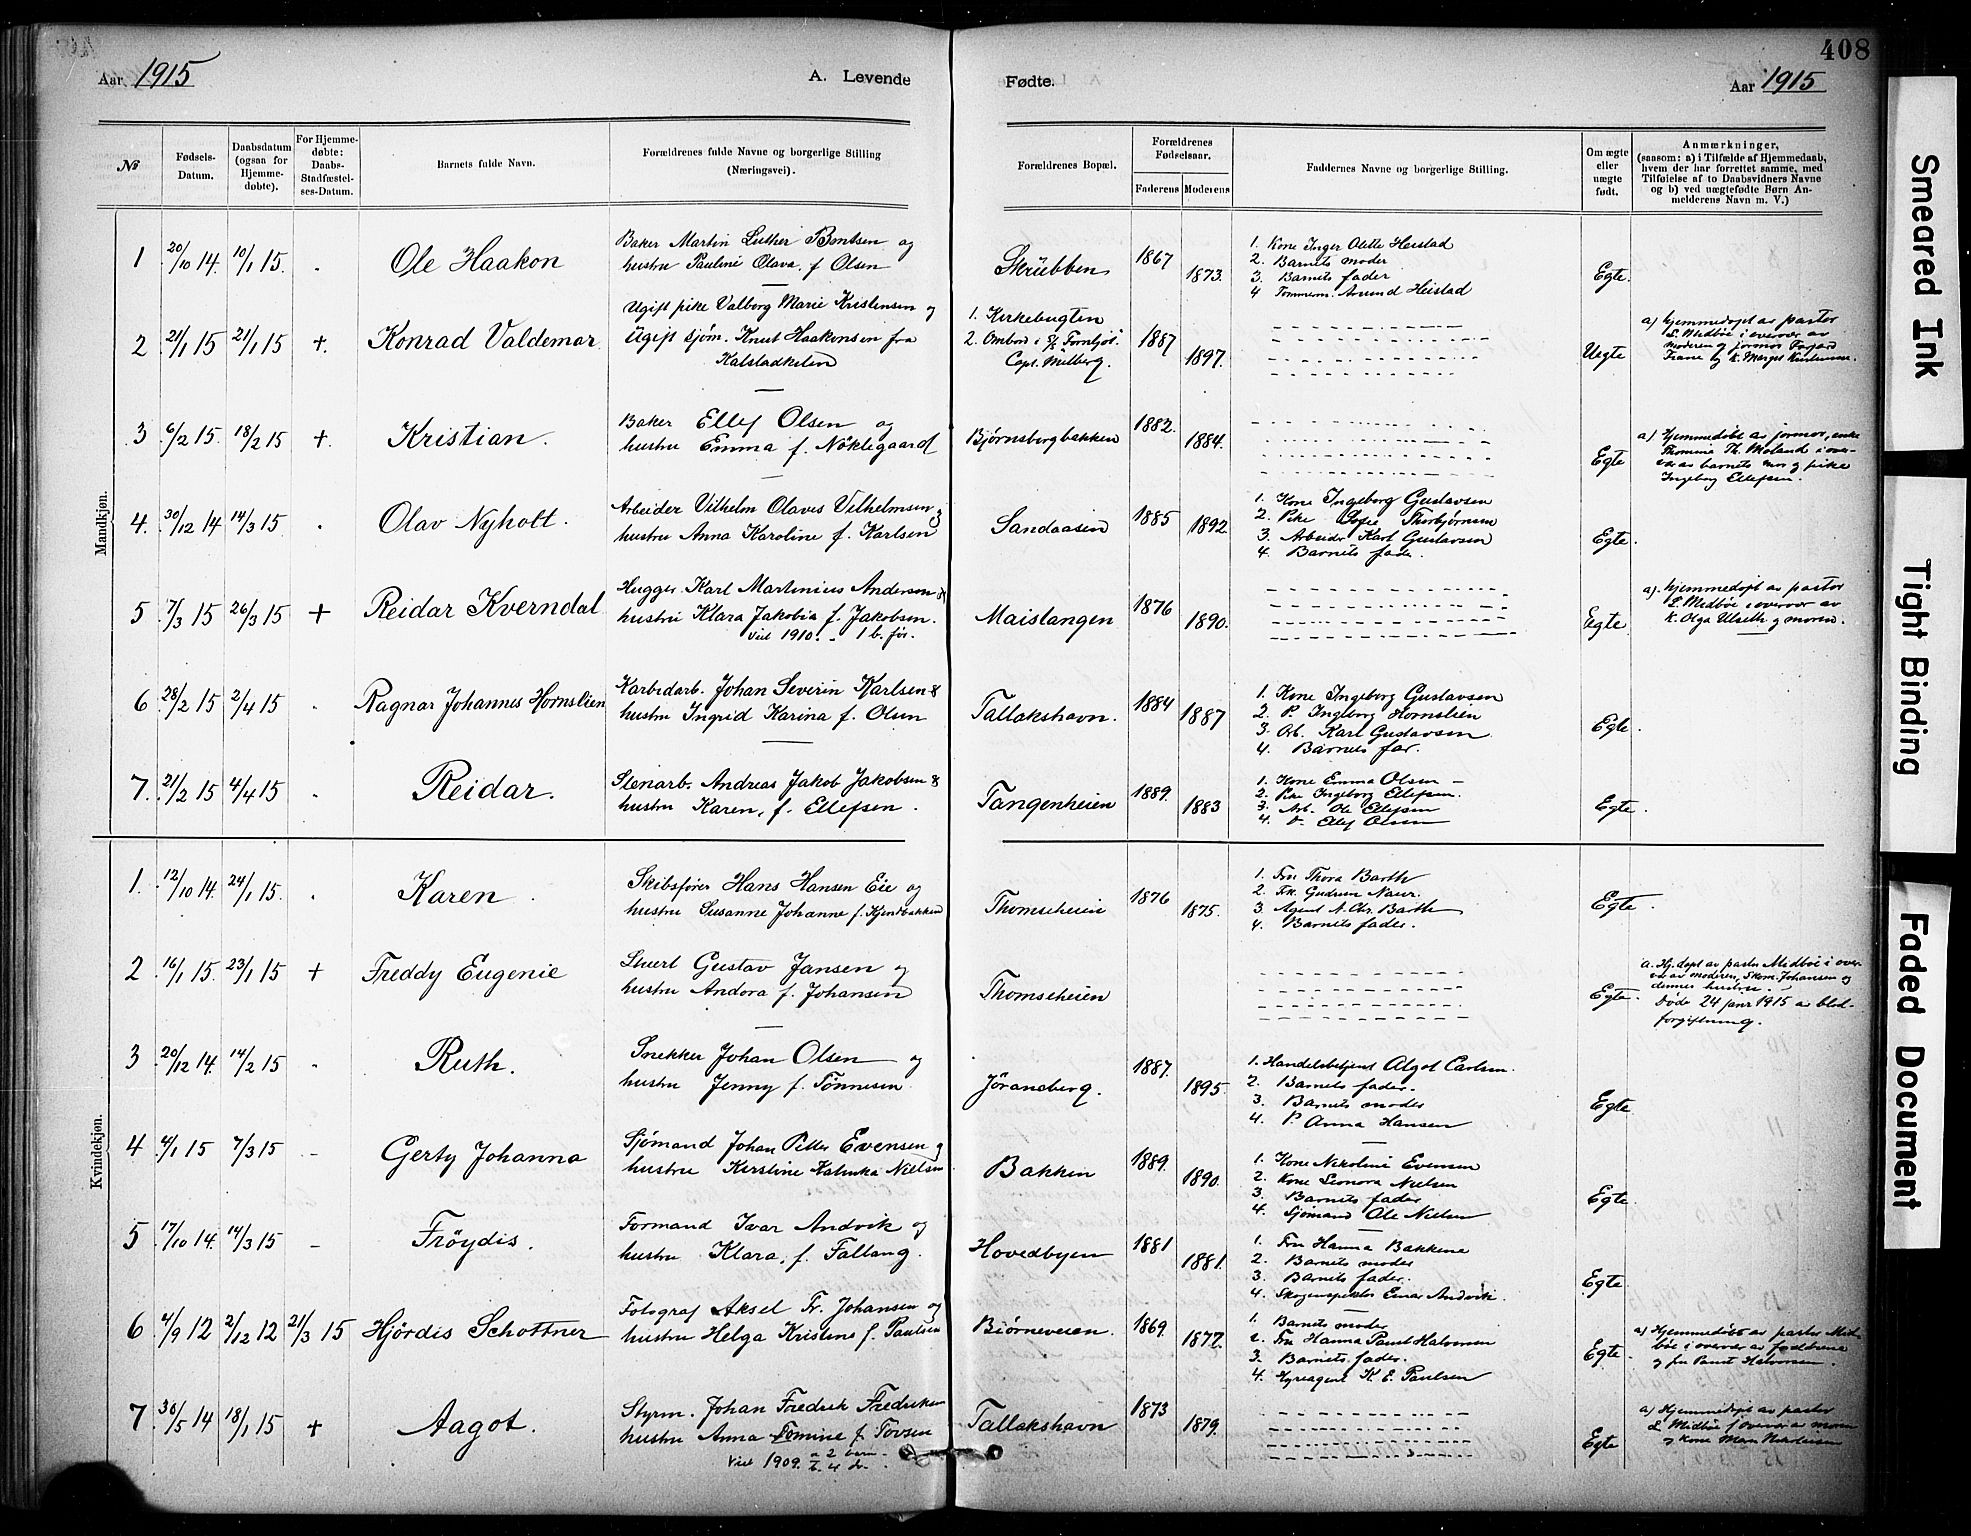 408
Aar 1915
A. Levende
Fødte.
Aar 1915
№
Fødsels-Datum.
Daabsdatum (ogsaa for Hjemmedøbte).
For Hjemmedøbte: Daabs-Stadfæstelses-Datum.
Barnets fulde Navn.
Forældrenes fulde Navne og borgerlige Stilling (Næringsvei).
Forældrenes Bopæl.
Forældrenes Fødselsaar.
Faderens Moderens
Faddernes Navne og borgerlige Stilling.
Om ægte eller uægte født.
Anmærkninger,
(saasom: a) i Tilfælde af Hjemmedaab, hvem der har forrettet samme, med Tilføielse af to Daabsvidners Navne og b) ved uægtefødte Børn Anmelderens Navn m. V.)
Mandkjøn.
1 20/10 14. 10/1 15. Ole Haakon
Baker Martin Luther Berntsen og
hustru Pauline Olava, f. Olsen
Skrubben 1867 1873.
1. Kone Inger Otelie Heistad
2. Barnets moder
3. Barnets fader
4 Tømmerm. Amund Heistad
Egte.
2 21/1 15 21/1 15 +. Konrad Valdemar
Ugift pike Valborg Marie Kristensen og
Ugift sjøm. Knut Haakonsen fra
Kalstadkilen
1. Kirkebugten
2. Ombord i
Capt. Milberg.
1887 1897.
Uegte
a) hjemmedøpt av pastor
L. Medbøe i overvær av
moderen
3 6/2 15. 18/2 15 +. Kristian.
Baker Ellef Olsen og
hustru Emma f. Nöklegaard
Bjørnsbergbakken 1882. 1884.
Egte
a) Hjemmedøbt av jormor, enke
Thomine Th. Moland i over-
vær av barnets mor og pike
Ingeborg Ellefsen.
4. 30/12 14 14/3 15 Olav Nyholt.
Arbeider Vilhelm Olaves Vilhelmsen og
hustru Anna Karoline f. Karlsen
Sandaasen 1885 1892
1. Kone Ingeborg Gustavsen
2. Pike Sofie Thorbjørnsen
3. Arbeider Karl Gustavsen
4. Barnets fader.
Egte.
5 7/3 15 26/3 15 + Reidar Kverndal
Hugger Karl Martinius Andersen &
hustru Klara Jakobia f. Jakobsen.
Viet 1910. 1 b. før.
Maislangen 1876 1890.
Egte
a). hjemmedøpt av pastor
L. Medbøe i overvær av
K. Olga Ulseth og moren.
6 28/2 15 2/4 15 Ragnar Johannes Hornslien
Karbidarb. Johan Severin Karlsen &
hustru Ingrid Karina f. Olsen
Tallakshavn. 1884 1887
1. Kone Ingeborg Gustavsen
2. P. Ingeborg Hornslien
3. Arb. Karl Gustavsen
4. Barnets far.
Egte.
7. 21/2 15 4/4 15 Reidar.
Stenarb. Andreas Jakob Jakobsen &
hustru Karen, f. Ellefsen.
Tangenheien 1889. 1883
1. Kone Emma Olsen
2. Pike Ingeborg Ellefsen.
3. Arb. Ole Ellefsen
4. Do Ellef Olsen
Egte.
Kvindekjøn.
1. 12/10 14. 24/1 15. Karen
Skibsfører Hans Hansen Eie og
hustru Susanne Johanne f. Kjendbakken
Thomseheien 1876 1875.
1. Fru Thora Barth
2. Frk. Gudrun Naur.
3. Agent N. Chr. Barth
4. Barnets fader.
Egte.
2 16/1 15. 23/1 15 + Freddy Eugenie
Stuert Gustav Jansen og
hustru Andora f. Johansen
Thomseheien
Egte.
a. Hj.døpt av pastor Midbøe i over-
vær av moderen, Skom. Johansen og
dennes hustru.
Døde 24 janr 1915 av blod-
forgiftning.
3 20/12 14. 14/2 15 Ruth.
Snekker Johan Olsen og
hustru Jenny f. Tönnesen
Jöransberg. 1887. 1895.
1. Handelsbetjent Algot Carlsen.
2. Barnets fader.
3. Barnets moder
4. P. Anna Hansen
Egte
4 4/1 15 7/3 15 Gerty Johanna
Sjømand Johan Petter Evensen og
hustru Kerstine Katinka Nielsen
Bakken 1889. 1890.
1. Kone Nikoline Evensen
2. Kone Leonora Nielsen
3. Barnets fader
4. Sjømand Ole Nielsen
Egte.
5 17/10 14. 14/3 15 Fröydis.
Formand Ivar Andvik og
hustru Klara, f. Fallang.
Hovedbyen 1881 1881.
1. Fru Hanna Bakkene
2. Barnets moder
3. Barnets fader.
4. Skoginspektør Einar Andvik.
Egte
6 4/9 12 2/12 12 21/3 15 Hjördis Schottner
Fotograf Aksel Fr. Johansen og
hustru Helga Kristine f. Paulsen
Biørneveien. 1869. 1877.
1. Barnets moder
2. Fru Hanna Halvorsen
3. Barnets fader.
4. Hyreagent K. E. Paulsen
Egte.
a) Hjemmedøbt av pastor Mid-
bøe i overvær av forældrene
og fru Halvorsen.
7 30/5 14 18/1 15 + Aagot.
Styrm. Johan Fredrik Fredriksen
hustru Anna Tomine f. Tovsen
Viet 1909. a 2 barn b. 4 do.
Tallakshavn 1873 1879.
Egte
a) Hjemmedøpt av pastor
L. Midbøe i overvær av moren
og Kone
Smeared Ink
Tight Binding
Faded Document